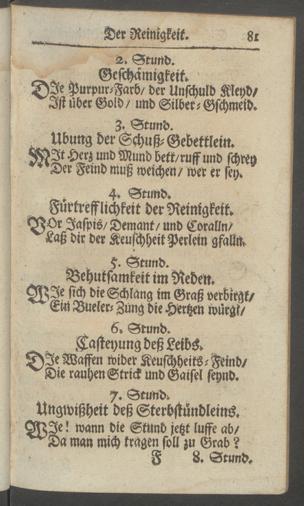 Der Reinigkeit. 81
2. Stund.
Geschämigkeit.
DIe Purpur-Farb/ der Unschuld Kleyd/
Ist über Gold/ und Silber-Gschmeid.
3. Stund.
Ubung der Schuß-Gebettlein.
MIt Hertz und Mund bett/ ruff und schrey
Der Feind muß weichen/ wer er sey.
4. Stund.
Fürtrefflichkeit der Reinigkeit.
VOr Jaspis/ Demant/ und Coralln/
Laß dir der Keuschheit Perlein gfalln.
5. Stund.
Behutsamkeit im Reden.
WIe sich die Schlang im Graß verbirgt/
Ein Bueler-Zung die Hertzen würgt/
6. Stund.
Casteyung deß Leibs.
DIe Waffen wider Keuschheits-Feind/
Die rauhen Strick und Gaisel seynd.
7. Stund.
Ungwißheit deß Sterbstündleins.
WIe! wann die Stund jetzt luffe ab/
Da man mich tragen soll zu Grab?
F 8. Stund.